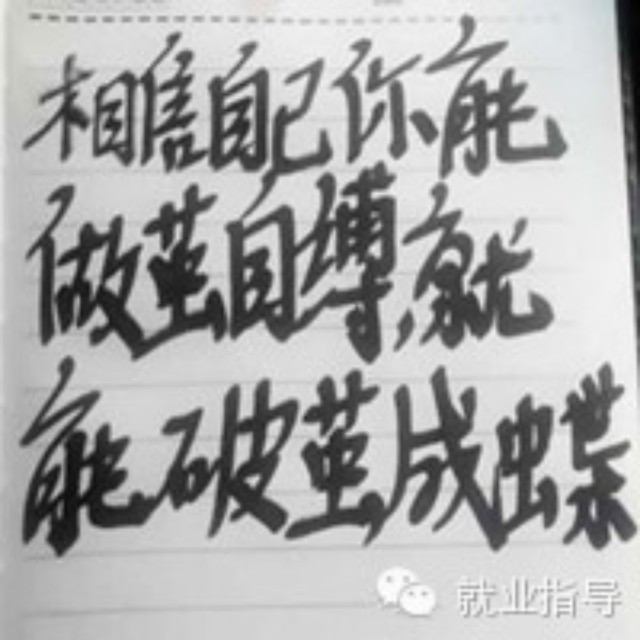 相信自己你能
做茧自缚,就
能破茧成蝶
就业指导